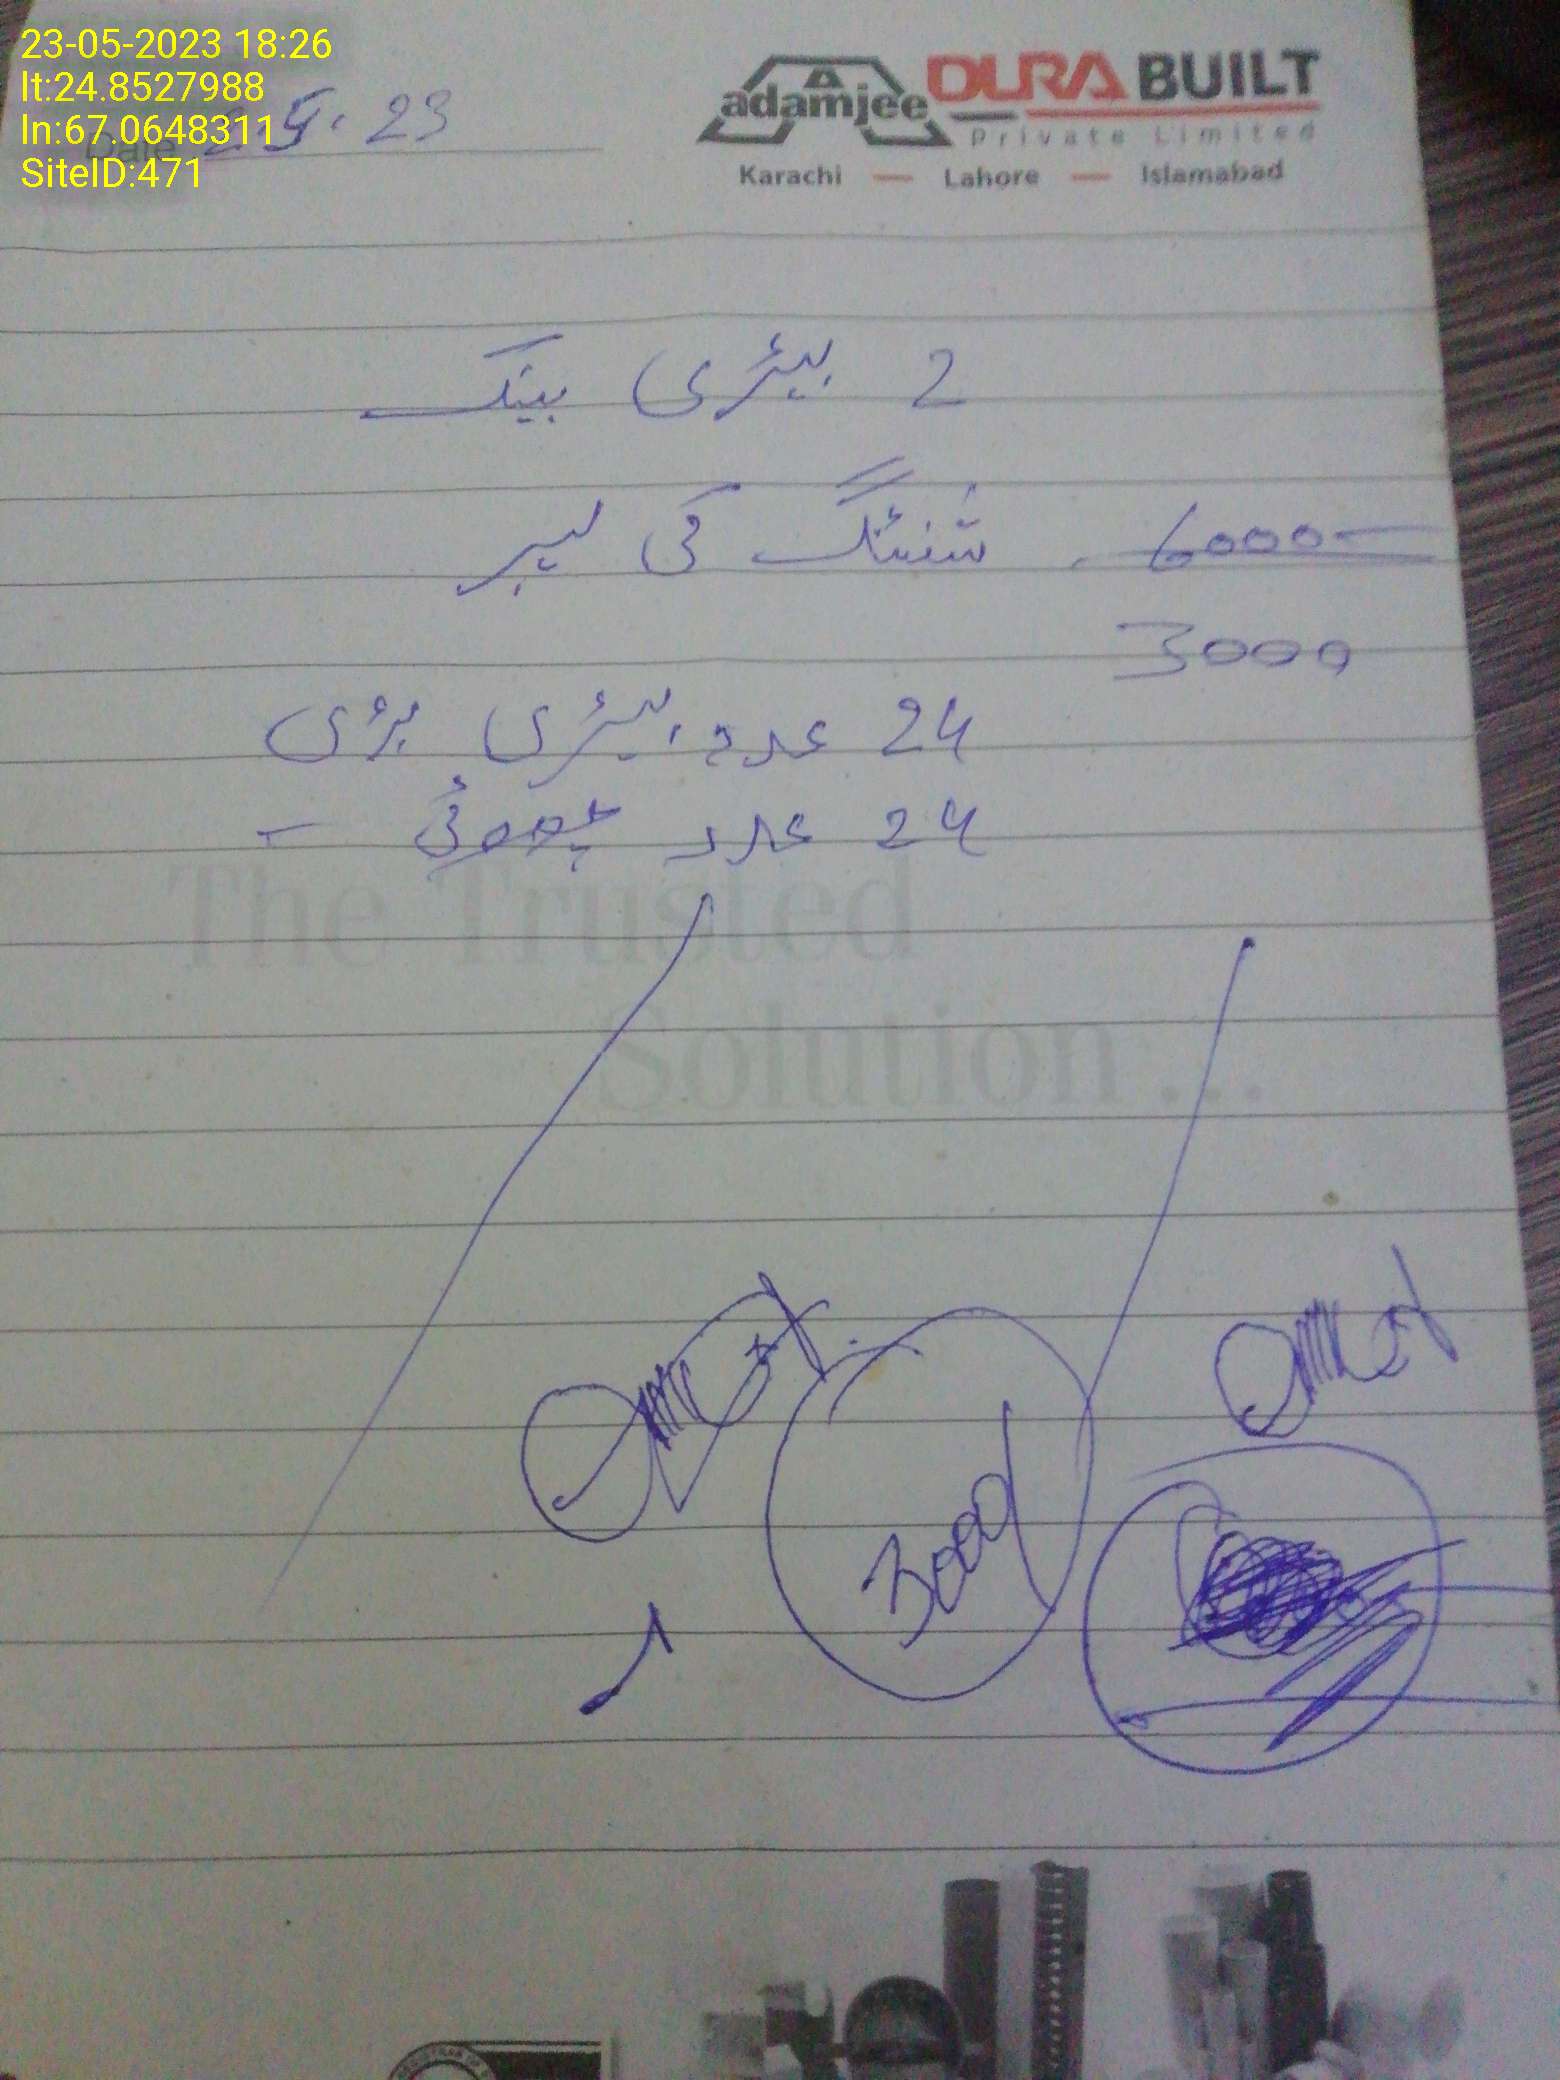 23-05-2023 18:26
lt:24.8527988
ln:67.0648311
SiteID:471
Date 2.5.23
adamjee DURA BUILT
Private Limited
Karachi — Lahore — Islamabad
2 بیٹری بینک
6000 شفٹنگ کی لیبر
3000
24 عدد بیٹری بڑی
24 عدد چھوٹی
The Trusted
Solution...
3000